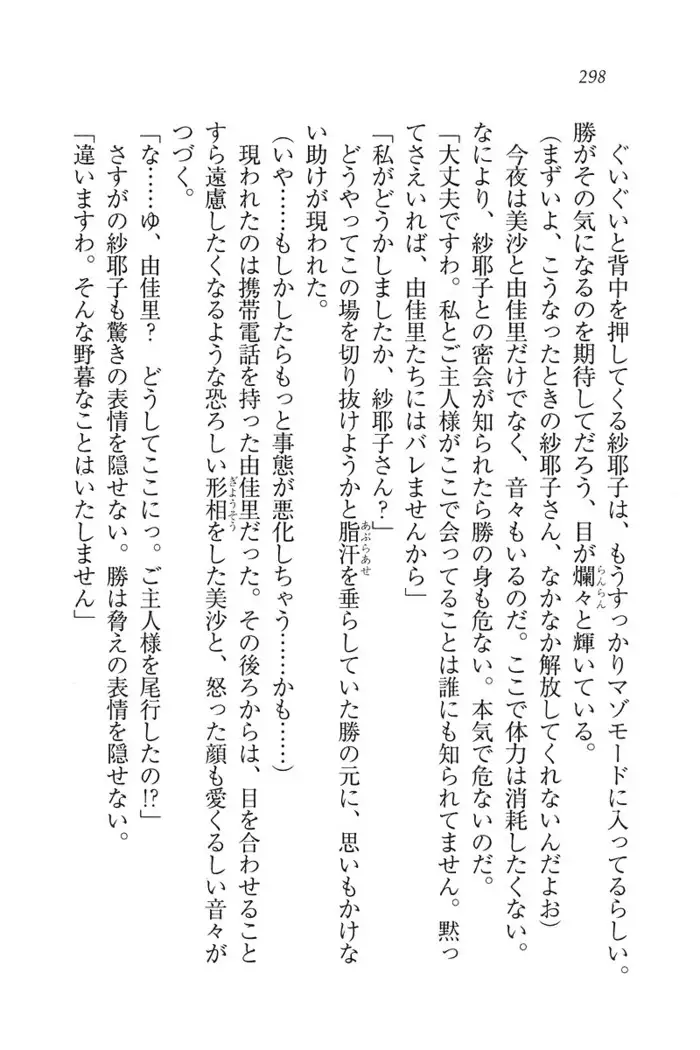 298
ぐいぐいと背中を押してくる紗耶子は、もうすっかりマゾモードに入ってるらしい。
勝がその気になるのを期待してだろう、目が爛々と輝いている。
(まずいよ、こうなったときの紗耶子さん、なかなか解放してくれないんだよお)
今夜は美沙と由佳里だけでなく、音々もいるのだ。ここで体力は消耗したくない。
なにより、紗耶子との密会が知られたら勝の身も危ない。本気で危ないのだ。
「大丈夫ですわ。私とご主人様がここで会ってることは誰にも知られてません。黙っ
てさえいれば、由佳里たちにはバレませんから」
「私がどうかしましたか、紗耶子さん?」
どうやってこの場を切り抜けようかと脂汗を垂らしていた勝の元に、思いもかけな
い助けが現われた。
(いや……もしかしたらもっと事態が悪化しちゃう……かも……)
現われたのは携帯電話を持った由佳里だった。その後ろからは、目を合わせること
すら遠慮したくなるような恐ろしい形相をした美沙と、怒った顔も愛くるしい音々が
つづく。
「な……ゆ、由佳里? どうしてここにっ。ご主人様を尾行したの!?」
さすがの紗耶子も驚きの表情を隠せない。勝は脅えの表情を隠せない。
「違いますわ。そんな野暮なことはいたしません」